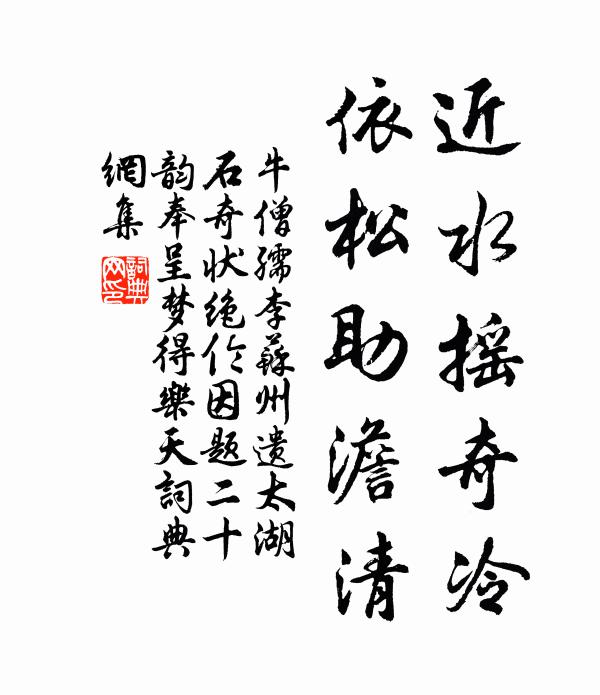 近水摇奇冷
依松助澹清
牛僧孺李蘇州遺太湖
石奇状绝伦因题二十
韵奉呈梦得樂天詞典
網集
詞典網印